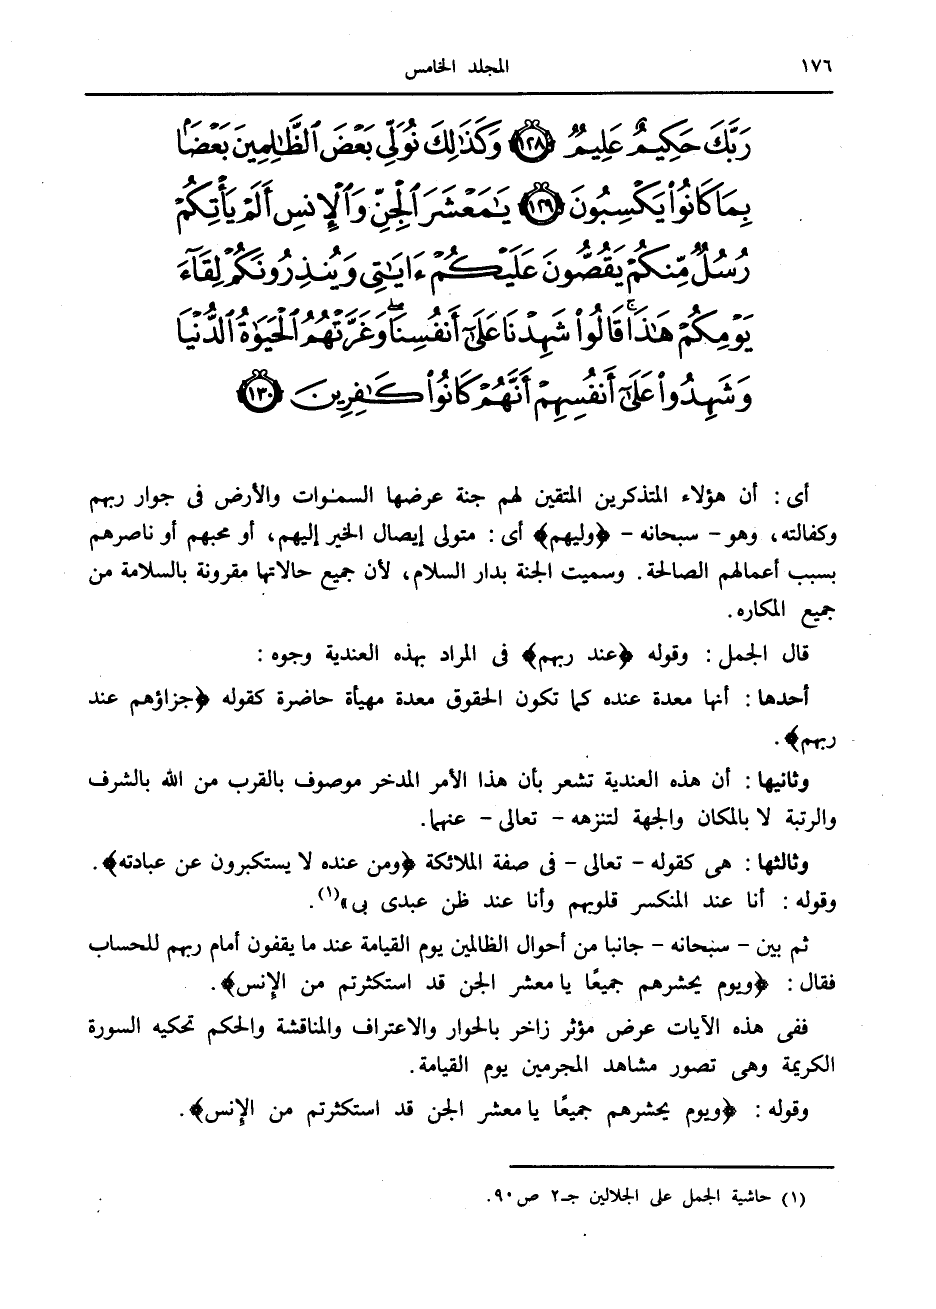 ١٧٦ المجلد الخامس
رَبَّكَ حَكِيمٌ عَلِيمٌ ﴿١٢٨﴾ وَكَذَٰلِكَ نُوَلِّي بَعْضَ ٱلظَّـٰلِمِينَ بَعْضًۢا
بِمَا كَانُوا۟ يَكْسِبُونَ ﴿١٢٩﴾ يَـٰمَعْشَرَ ٱلْجِنِّ وَٱلْإِنسِ أَلَمْ يَأْتِكُمْ
رُسُلٌ مِّنكُمْ يَقُصُّونَ عَلَيْكُمْ ءَايَـٰتِي وَيُنذِرُونَكُمْ لِقَآءَ
يَوْمِكُمْ هَـٰذَا ۚ قَالُوا۟ شَهِدْنَا عَلَىٰٓ أَنفُسِنَا ۖ وَغَرَّتْهُمُ ٱلْحَيَوٰةُ ٱلدُّنْيَا
وَشَهِدُوا۟ عَلَىٰٓ أَنفُسِهِمْ أَنَّهُمْ كَانُوا۟ كَـٰفِرِينَ ﴿١٣٠﴾
أى : أن هؤلاء المتذكرين المتقين لهم جنة عرضها السمـٰوات والأرض فى جوار ربهم
وكفالته، وهو - سبحانه - ﴿وليهم﴾ أى : متولى إيصال الخير إليهم، أو محبهم أو ناصرهم
بسبب أعمالهم الصالحة. وسميت الجنة بدار السلام، لأن جميع حالاتها مقرونة بالسلامة من
جميع المكاره.
قال الجمل : وقوله ﴿عند ربهم﴾ فى المراد بهذه العندية وجوه :
أحدها : أنها معدة عنده كما تكون الحقوق معدة مهيأة حاضرة كقوله ﴿جزاؤهم عند
ربهم﴾.
وثانيها : أن هذه العندية تشعر بأن هذا الأمر المدخر موصوف بالقرب من الله بالشرف
والرتبة لا بالمكان والجهة لتنزهه - تعالى - عنهما.
وثالثها : هى كقوله - تعالى - فى صفة الملائكة ﴿ومن عنده لا يستكبرون عن عبادته﴾.
وقوله : أنا عند المنكسر قلوبهم وأنا عند ظن عبدى بى»(١).
ثم بين - سبحانه - جانبا من أحوال الظالمين يوم القيامة عند ما يقفون أمام ربهم للحساب
فقال : ﴿ويوم يحشرهم جميعًا يا معشر الجن قد استكثرتم من الإنس﴾.
ففى هذه الآيات عرض مؤثر زاخر بالحوار والاعتراف والمناقشة والحكم تحكيه السورة
الكريمة وهى تصور مشاهد المجرمين يوم القيامة.
وقوله : ﴿ويوم يحشرهم جميعًا يا معشر الجن قد استكثرتم من الإنس﴾.
(١) حاشية الجمل على الجلالين جـ٢ ص ٩٠.